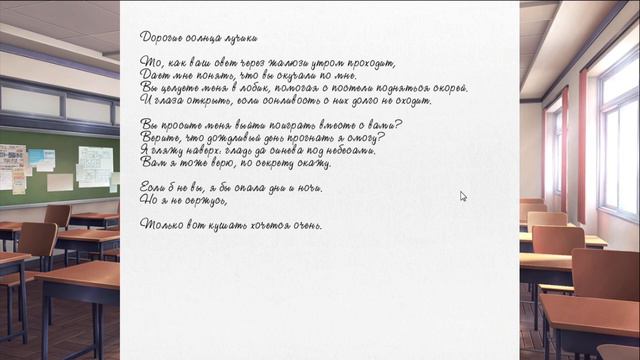 Дорогие солнца лучики
То, как ваш свет через жалюзи утром проходит,
Дает мне понять, что вы скучали по мне.
Вы целуете меня в лобик, помогая с постели подняться скорей.
И глаза открыть, если сонливость с них долго не сходит.
Вы просите меня выйти поиграть вместе с вами?
Верите, что дождливый день прогнать я смогу?
Я гляжу наверх: гладь да синева под небесами.
Вам я тоже верю, по секрету скажу.
Если б не вы, я бы спала дни и ночи.
Но я не сержусь,
Только вот кушать хочется очень.